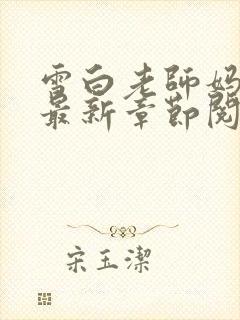 雪白老師媽
最新章節閱
宋玉潔